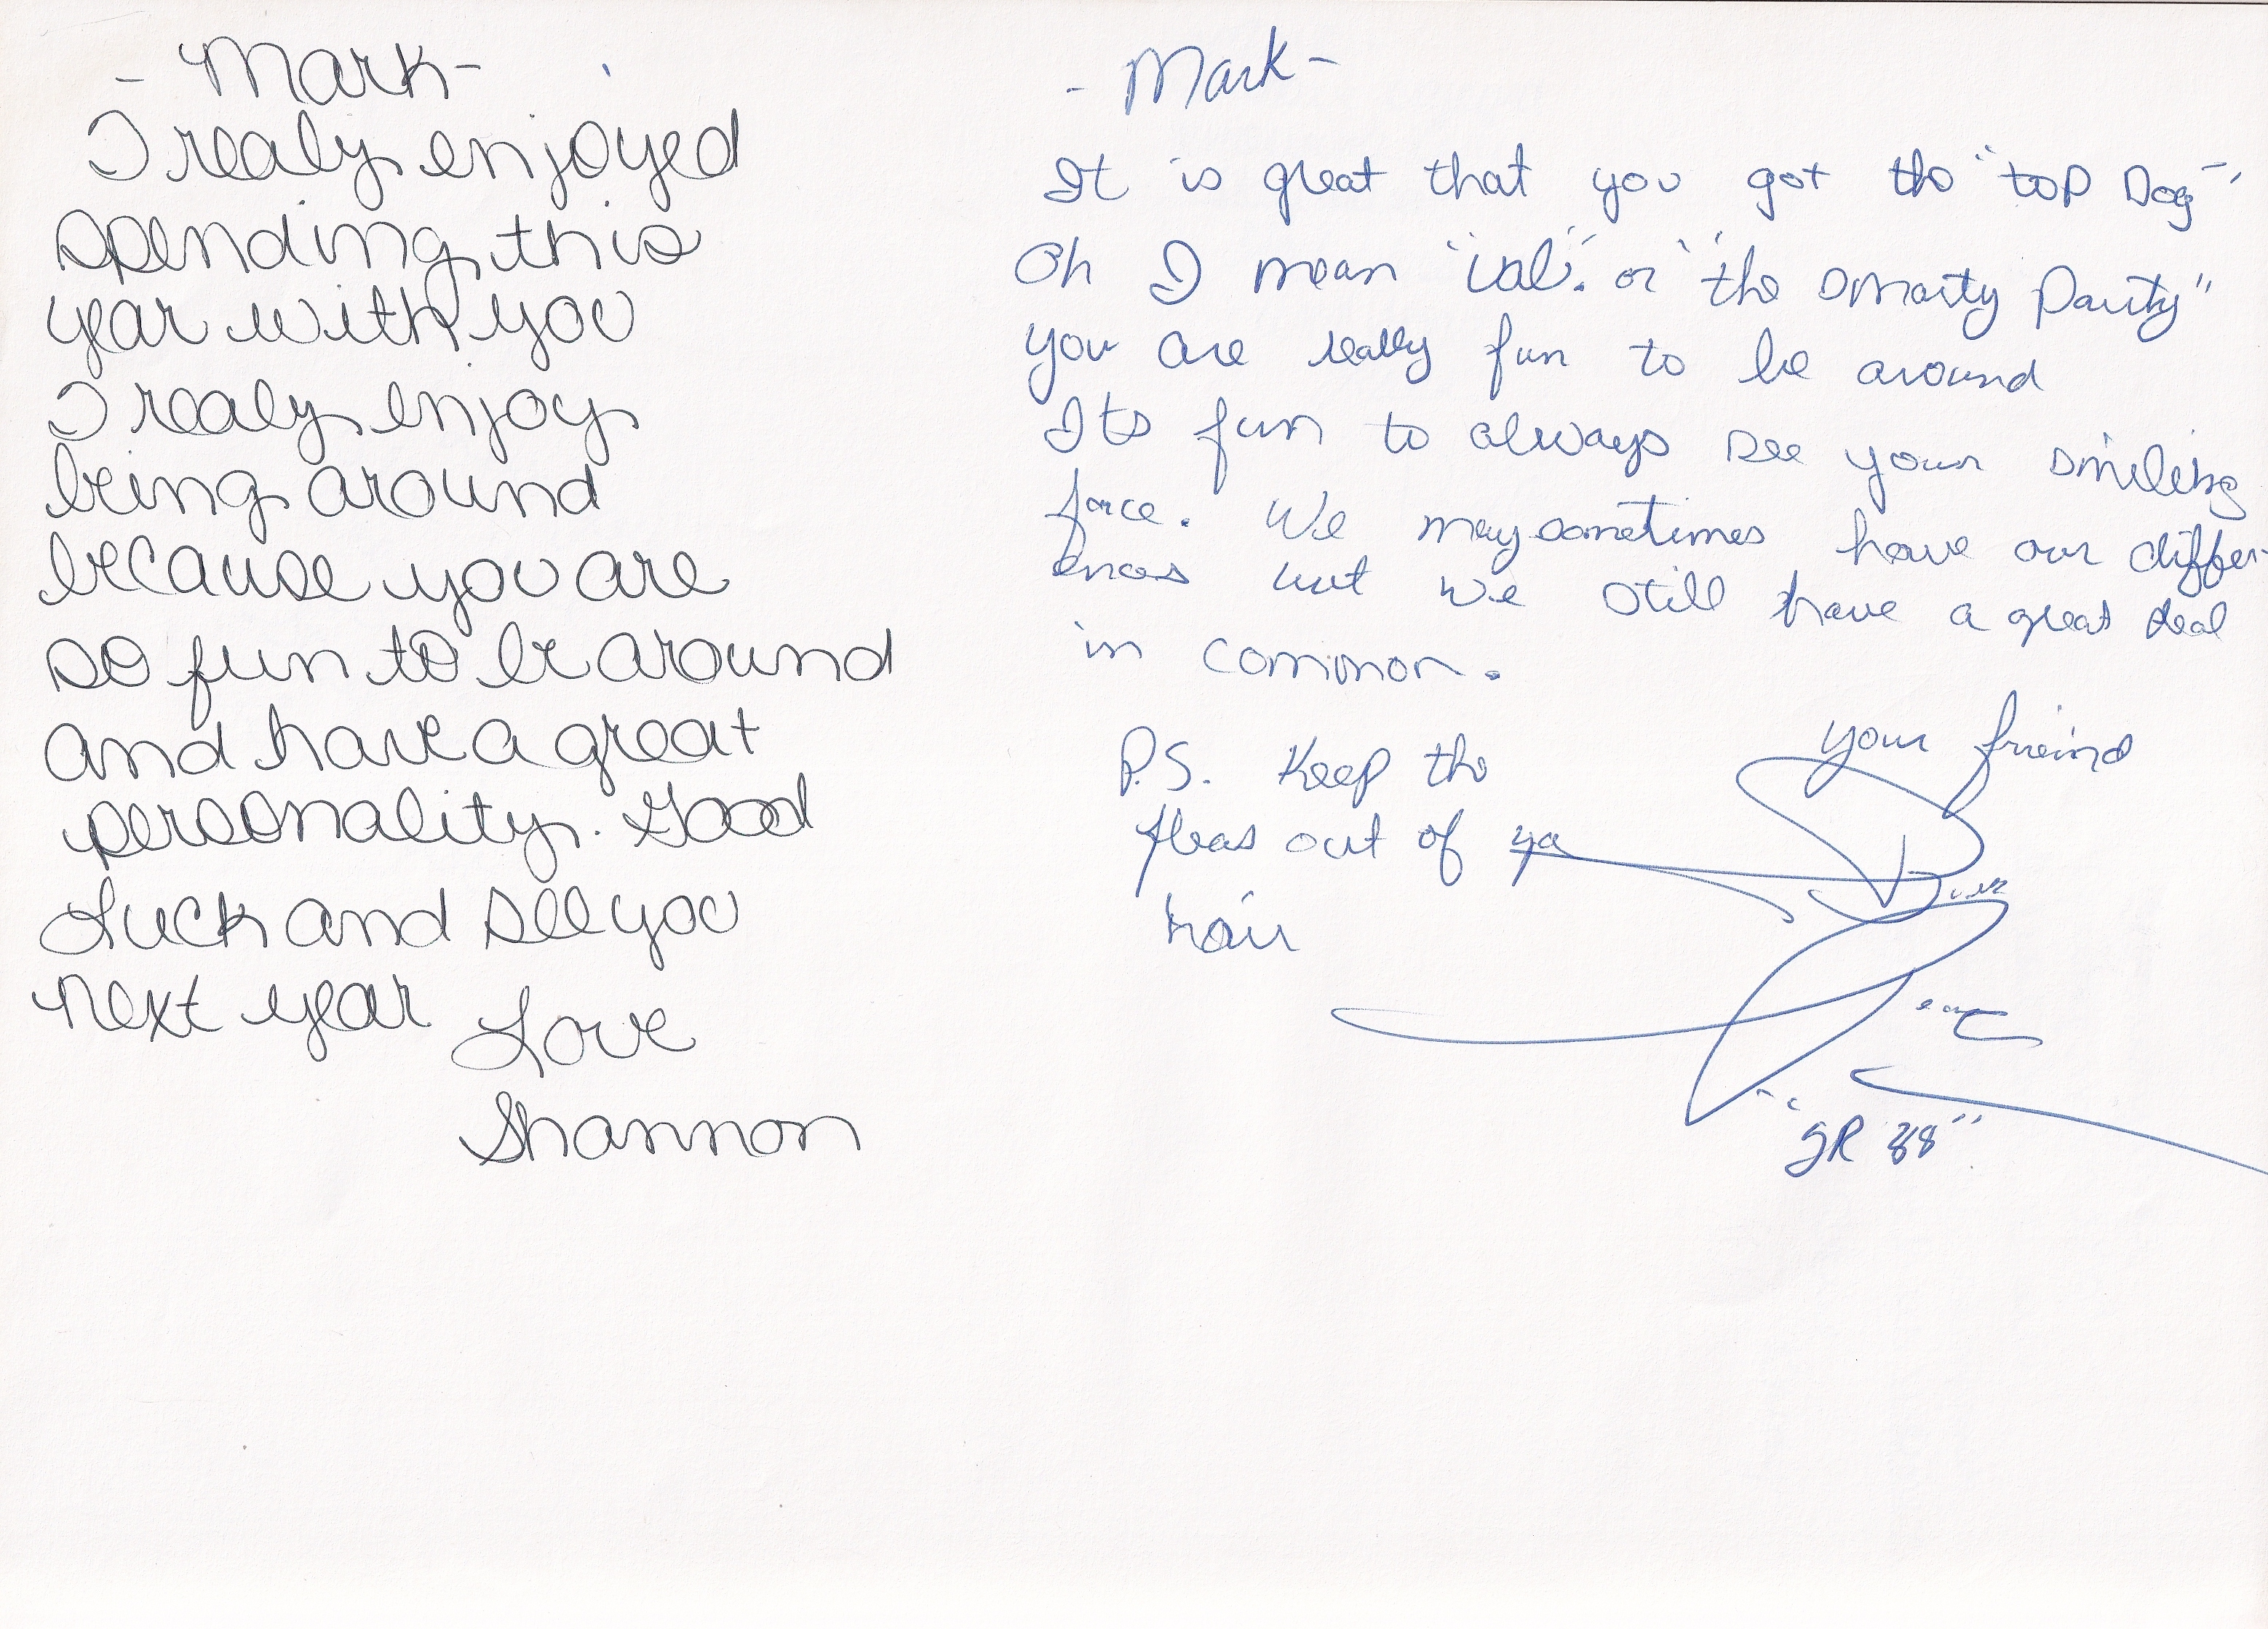 - Mark -
I realy enjoyed
spending this
year with you
I realy enjoy
being around
because you are
so fun to be around
and have a great
personality. Good
Luck and see you
next year
Love
Shannon
- Mark -
It is great that you got the "top Dog"
Oh I mean "Val". or "the smarty Party"
you are really fun to be around
Its fun to always see your smiling
face. We may sometimes have our differ-
ences but we still have a great deal
in common.
your freind
P.S. Keep the
fleas out of ya
hair
"JR 88"